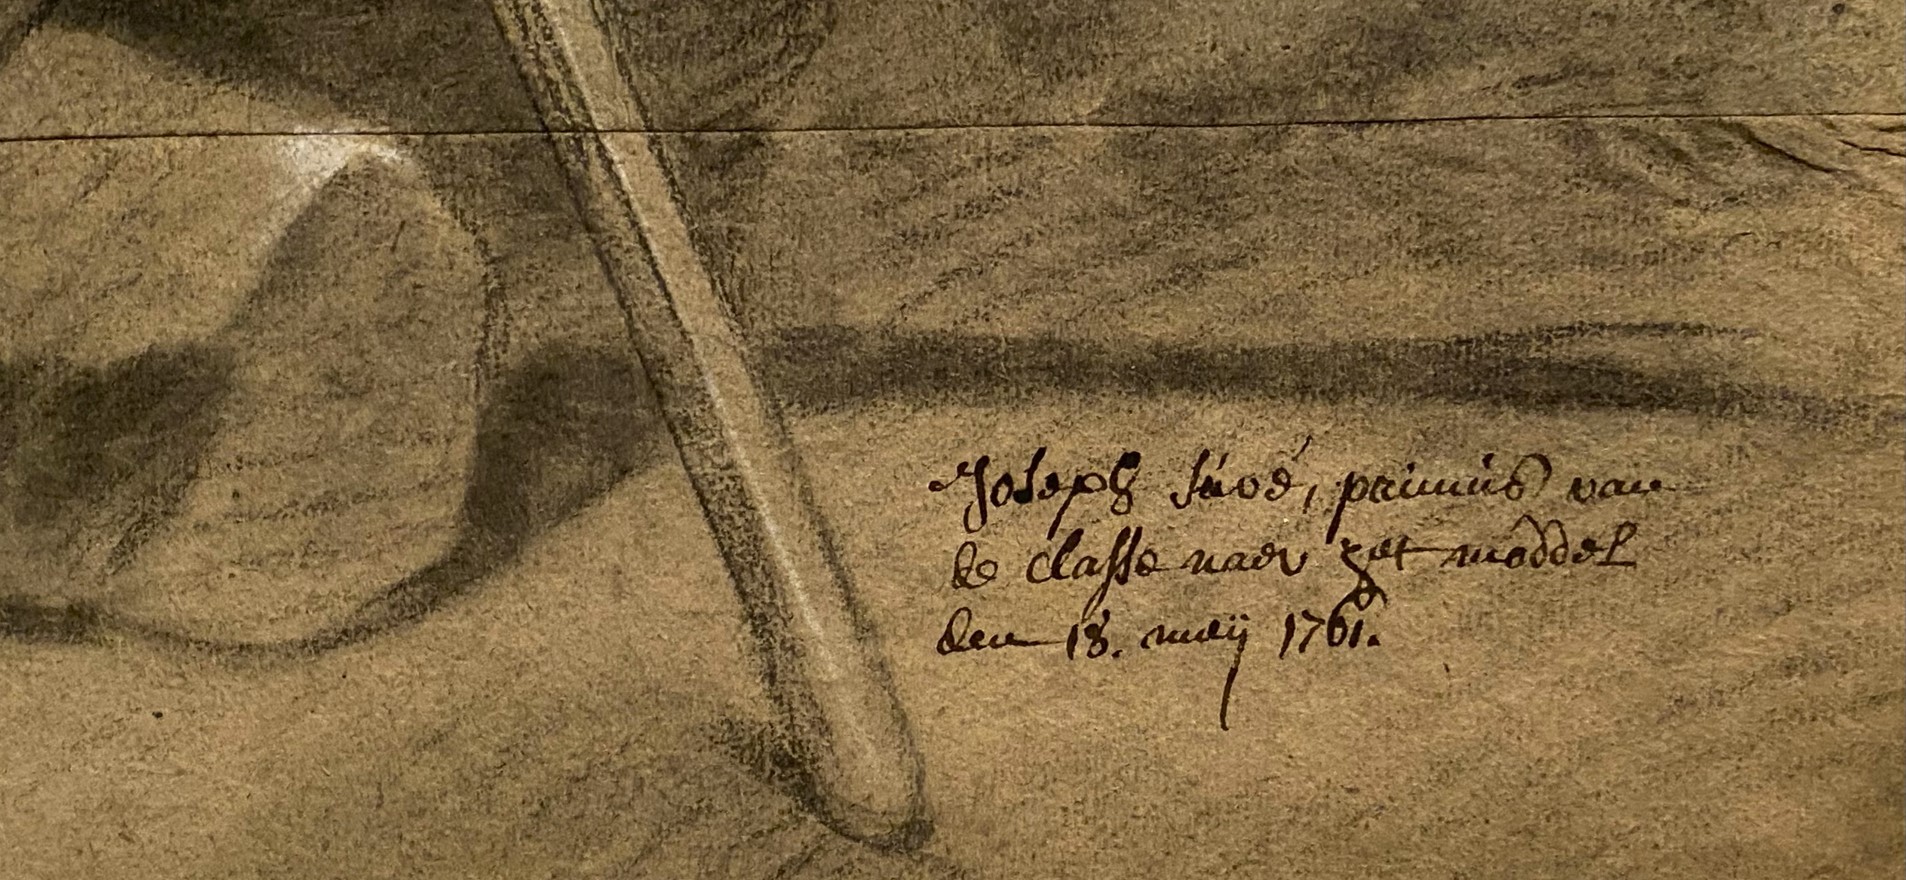 Joseph Suvé, primus van
de classe naer het moddel
den 18. meij 1761.